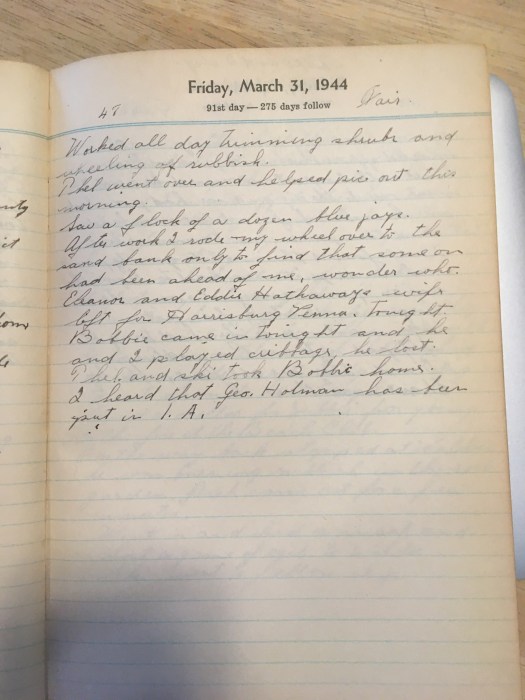 Friday, March 31, 1944
91st day — 275 days follow
47
Fair.
Worked all day trimming shrubs and
wheeling of rubbish.
Phel went over and helped pic out this
morning.
Saw a flock of a dozen blue jays.
After work I rode my wheel over to the
sand bank only to find that some on
had been ahead of me, wonder who.
Eleanor and Eddie Hathaways wife
left for Harrisburg Penna. tonight.
Bobbie came in tonight and he
and I played cribbage, he lost.
Phel. and ski took Bobbie home.
I heard that Geo. Holman has been
put in 1.A.